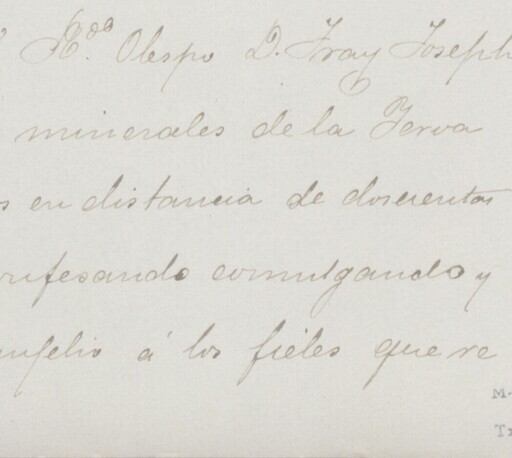 R.do Obispo D. Fray Joseph
minerales de la Terva
s en distancia de doscientas
onfesando comulgando y
angelio á los fieles que re
M-
Tx